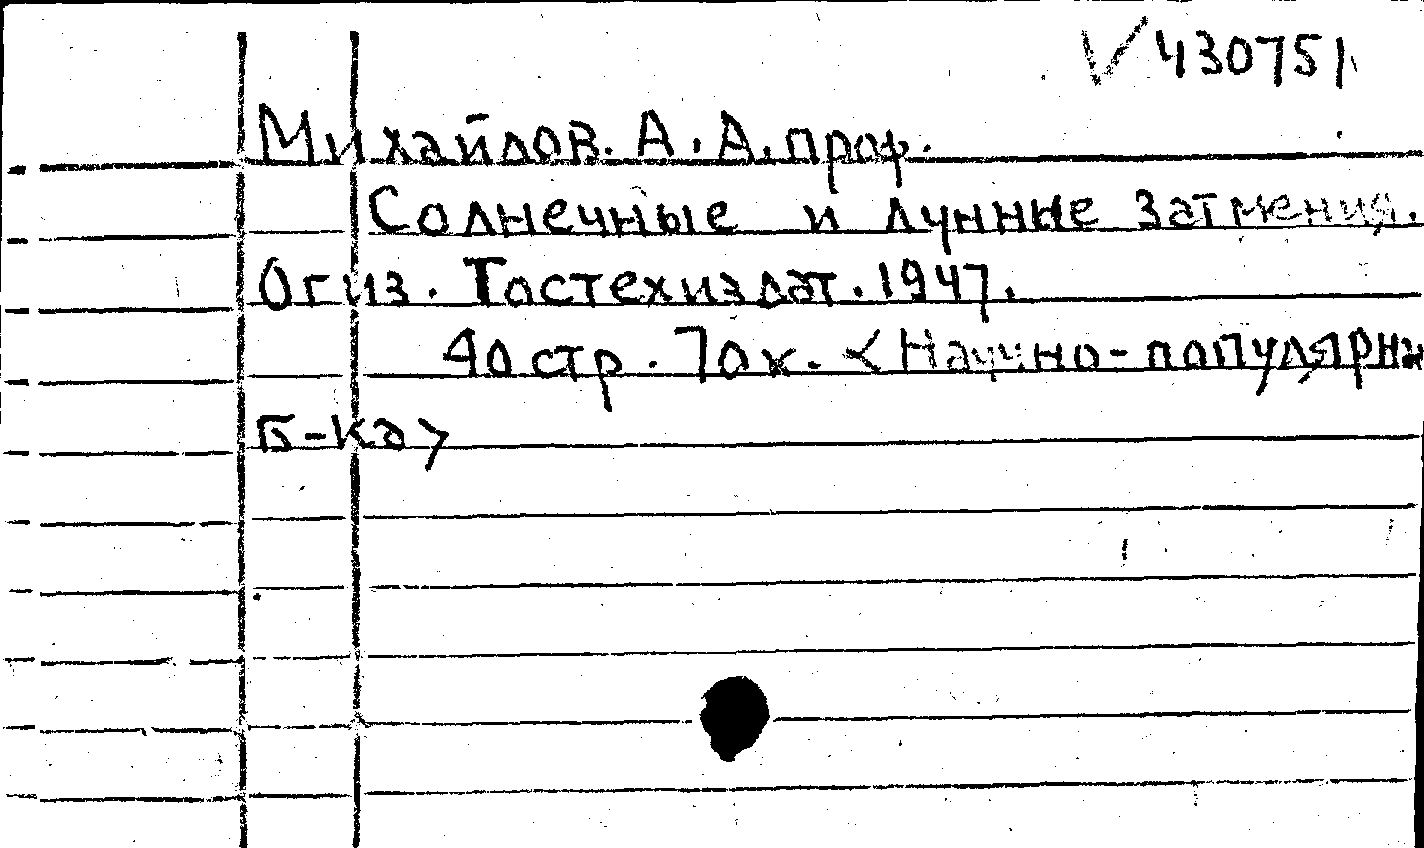 √ 430751
Михайлов. А. А. проф.
Солнечные и лунные затмения.
Огиз. Гостехиздат. 1947.
40 стр. 70 к. <Научно-популярн
Б-ка>